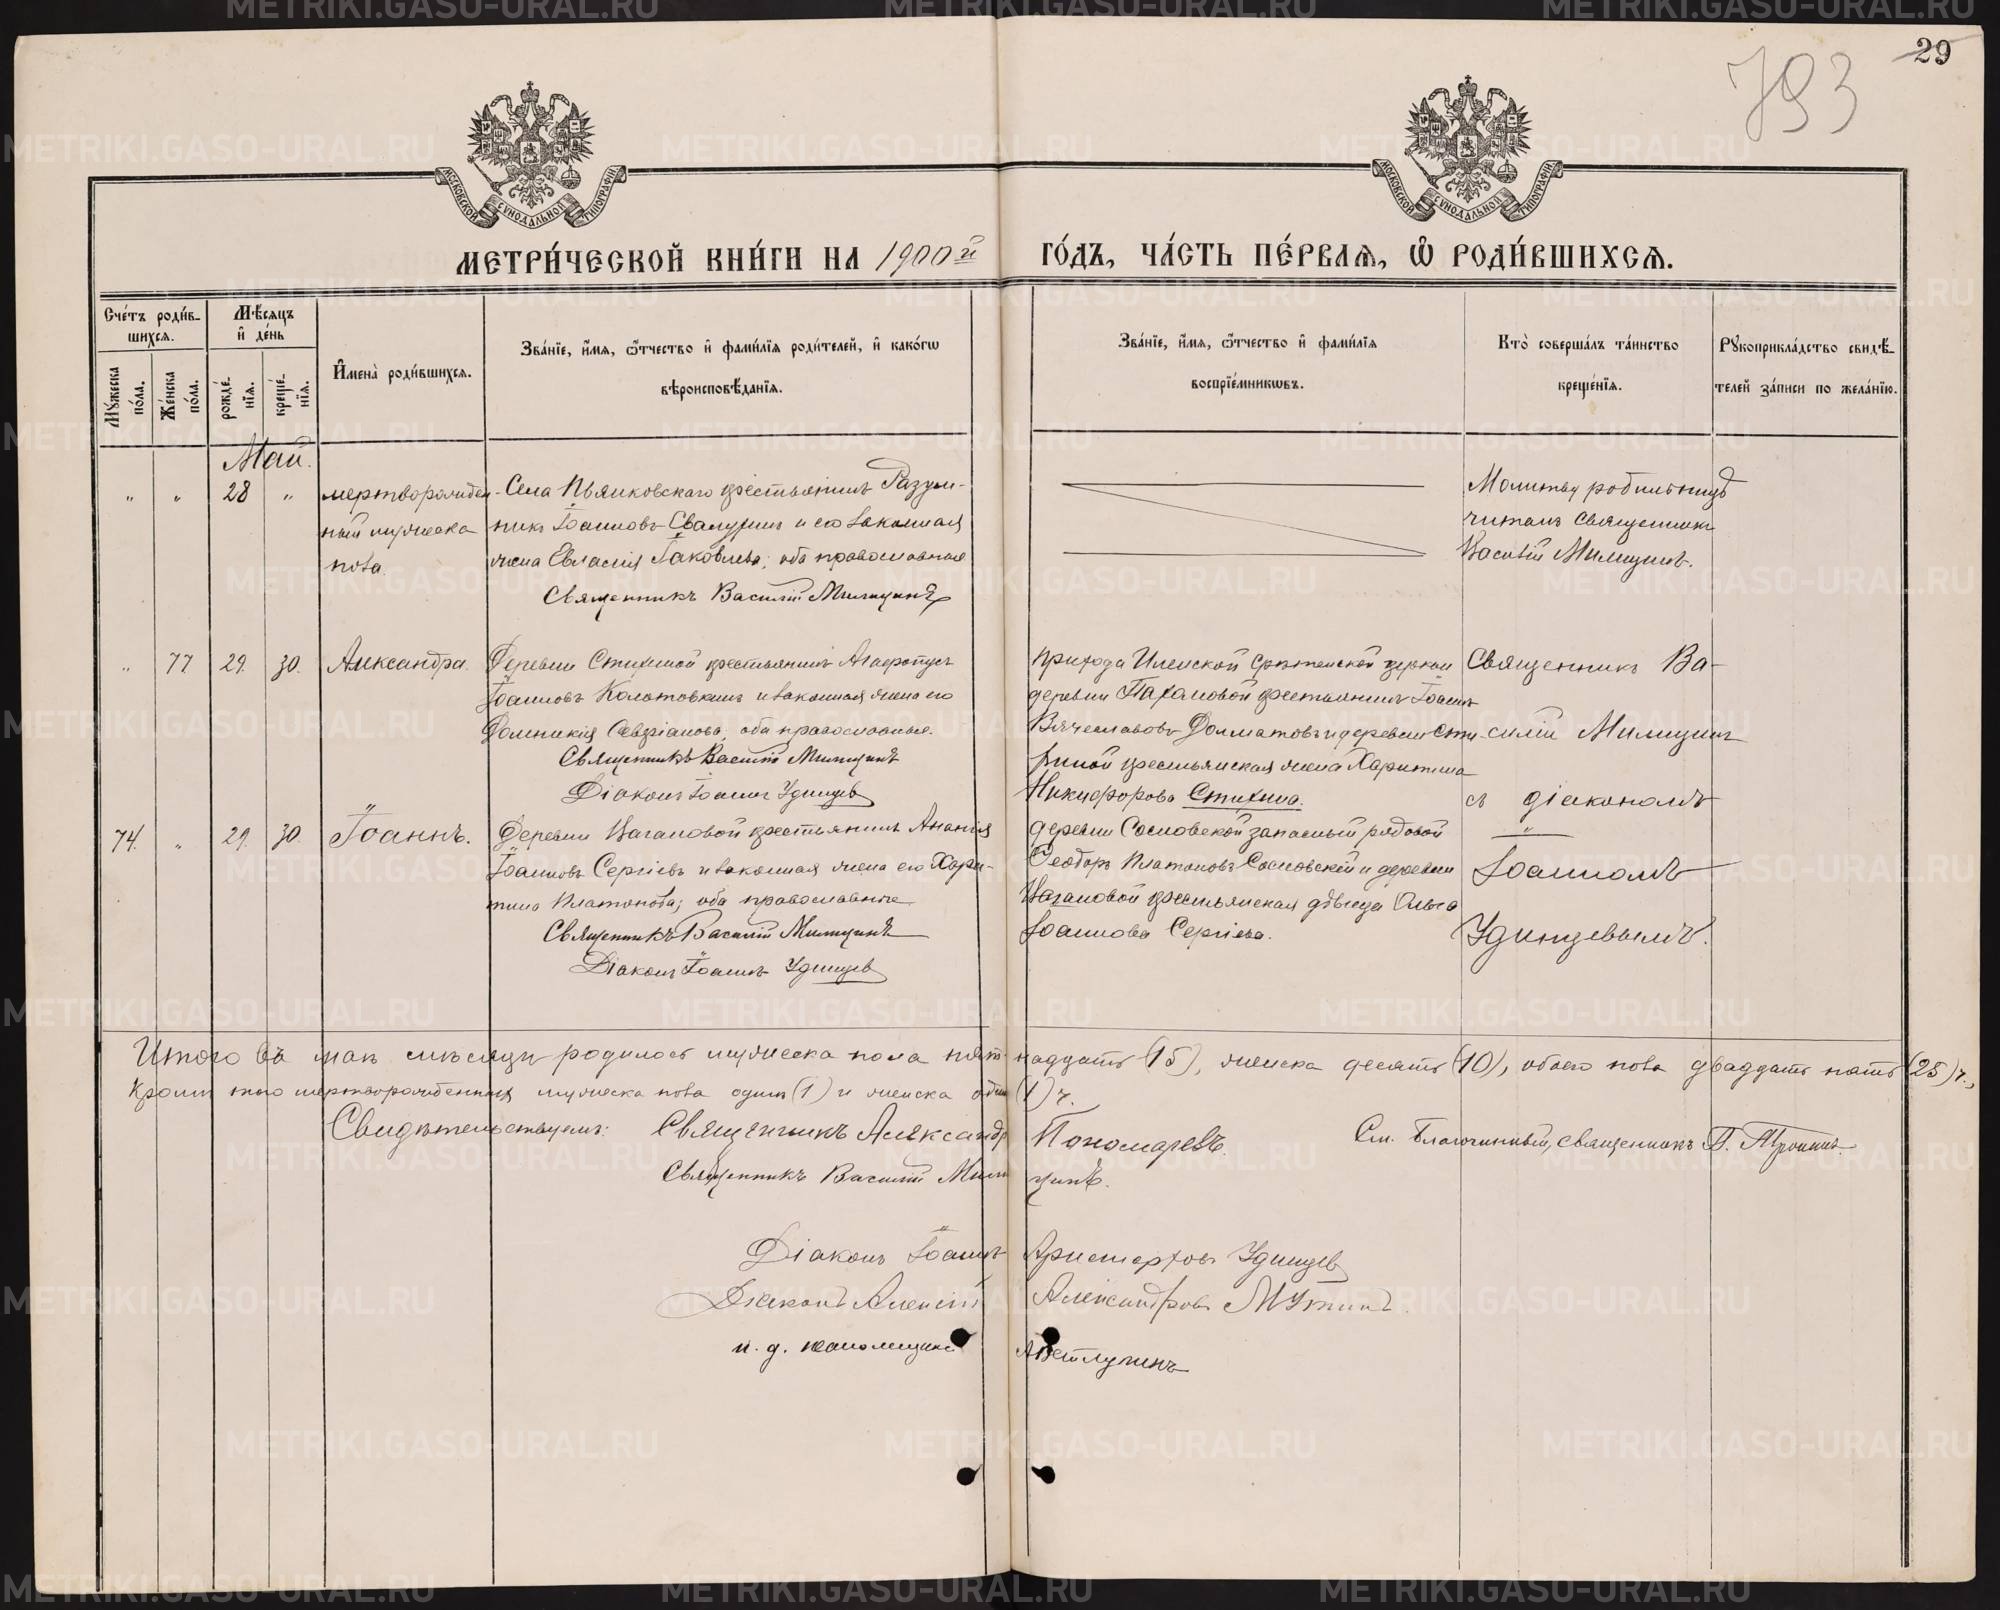 29
793
МОСКОВСКОЙ СѴНОДАЛЬНОЙ ТИПОГРАФІИ
МОСКОВСКОЙ СѴНОДАЛЬНОЙ ТИПОГРАФІИ
МЕТРИ́ЧЕСКОЙ КНИ́ГИ НА 1900й ГО́ДЪ, ЧА́СТЬ ПЕ́РВАѦ, Ѡ҆ РОДИ́ВШИХСѦ.
Сче́тъ роди́в-
шихсѧ.
Мѣ́сѧцъ
и҆ де́нь
Мꙋ́жеска по́ла.
Же́нска по́ла.
рожде́нїѧ.
креще́нїѧ.
И҆мена̀ роди́вшихсѧ.
Зва́нїе, и҆́мѧ, ѻ҆́тчество и҆ фами́лїѧ роди́телей, и҆ како́гѡ
вѣроисповѣ́данїѧ.
Зва́нїе, и҆́мѧ, ѻ҆́тчество и҆ фами́лїѧ
воспрїе́мникѡвъ.
Кто̀ соверша́лъ та́инство
креще́нїѧ.
Рꙋкоприкла́дство свидѣ́-
телей за́писи по жела́нїю.
Май.
" " 28 " мертворожден-
ный мужеска
пола.
Села Пьянковскаго крестьянинъ Разум-
никъ Іоанновъ Свалухинъ и его законная
жена Евлалія Іаковлева, оба православные
Священникъ Василій Милицинъ
Молитву родильницѣ
читалъ Священникъ
Василій Милицинъ.
" 77 29. 30. Александра.
Деревни Стихиной крестьянинъ Агафопусъ
Іоанновъ Колотовкинъ и законная жена его
Домникія оба православные.
Священникъ Василій Милицинъ
Діаконъ Іоаннъ Удинцев
прихода Иленской Срѣтенской церкви
деревни крестьянинъ Іоаннъ
Вячеславовъ Долматовъ и деревни Сти-
хиной крестьянская жена Харитина
Никифорова Стихина.
Священникъ Ва-
силій Милицинъ
съ діакономъ
Іоанномъ
Удинцевымъ.
74. " 29. 30. Іоаннъ.
Деревни Цагановой крестьянинъ Ананія
Іоанновъ Сергіевъ и законная жена его Хари-
тина Платонова; оба православные
Священникъ Василій Милицинъ
Діаконъ Іоаннъ Удинцев
деревни Сосновской запасный рядовой
Ѳеодоръ Платоновъ Сосновскій и деревни
Цагановой крестьянская дѣвица Ольга
Іоаннова Сергіева.
Итого въ маѣ мѣсяцѣ родилось мужеска пола пятнадцать (15), женска десять (10), обоего пола двадцать пять (25) ч.,
Кромѣ того мертворожденныхъ мужеска пола одинъ (1) и женска одна (1) ч.
Свидѣтельствуемъ: Священникъ Александръ Пономаревъ.
См. Благочинный, священникъ
Священникъ Василій Милицинъ.
Діаконъ Іоаннъ Аристарховъ Удинцев
Діаконъ Алексій Александровъ Мутинъ.
и. д. псаломщика
METRIKI.GASO-URAL.RU